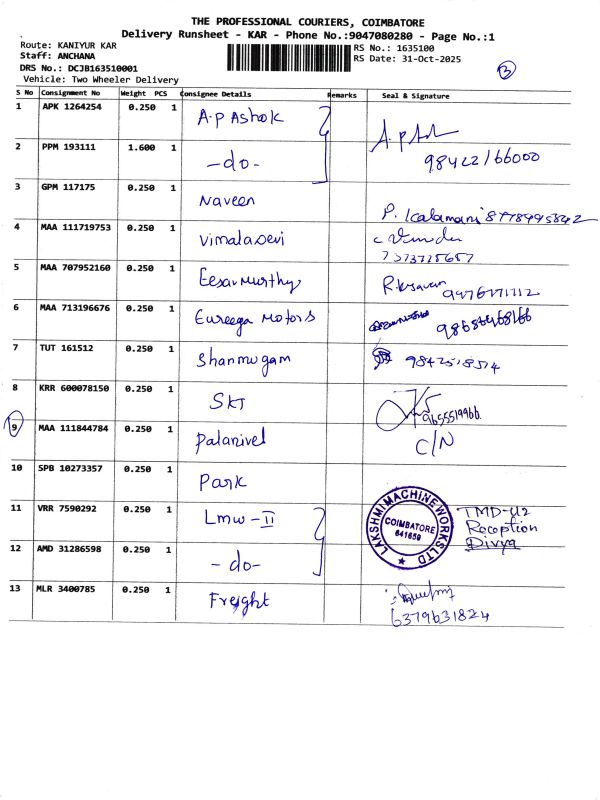 THE PROFESSIONAL COURIERS, COIMBATORE
Delivery Runsheet - KAR - Phone No.:9047080280 - Page No.:1
Route: KANIYUR KAR
Staff: ANCHANA
DRS No.: DCJB163510001
Vehicle: Two Wheeler Delivery
RS No.: 1635100
RS Date: 31-Oct-2025
13
S No Consignment No Weight PCS Consignee Details Remarks Seal & Signature
1 APK 1264254 0.250 1 A.P Ashok
2 PPM 193111 1.600 1 -do- 98422166000
3 GPM 117175 0.250 1 Naveen P. Kalamani 8778995842
4 MAA 111719753 0.250 1 VimalaDevi
5 MAA 707952160 0.250 1 Eesavmurthy
6 MAA 713196676 0.250 1 Eureega Motors
7 TUT 161512 0.250 1 Shanmugam 9842518514
8 KRR 600078150 0.250 1 SKT 9655519966
9 MAA 111844784 0.250 1 Palanivel C/N
10 SPB 10273357 0.250 1 Park
11 VRR 7590292 0.250 1 Lmw-II
LAKSHMI MACHINE WORKS LTD
COIMBATORE
641659
TMD-U2
Reception
Divya
12 AMD 31286598 0.250 1 -do-
13 MLR 3400785 0.250 1 Freight
6379631824